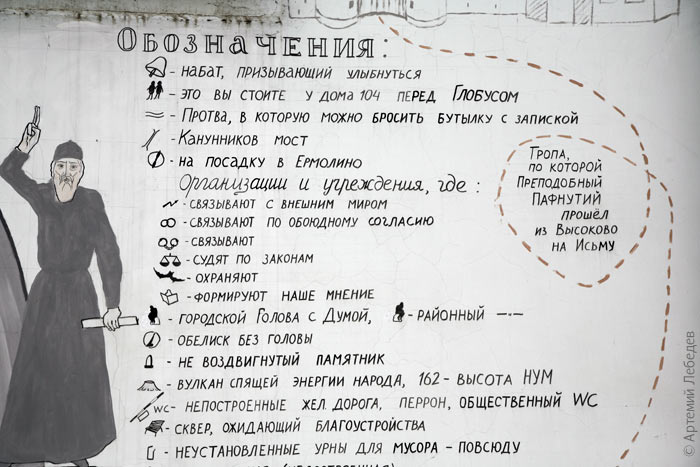 Обозначения:
- набат, призывающий улыбнуться
- это вы стоите у дома 104 перед Глобусом
- Протва, в которую можно бросить бутылку с запиской
- Канунников мост
- на посадку в Ермолино
Организации и учреждения, где:
- связывают с внешним миром
- связывают по обоюдному согласию
- связывают
- судят по законам
- охраняют
- формируют наше мнение
- городской Голова с Думой, - районный —·—
- обелиск без головы
- не воздвигнутый памятник
- вулкан спящей энергии народа, 162 - высота НУМ
WC - непостроенные жел. дорога, перрон, общественный WC
- сквер, ожидающий благоустройства
- неустановленные урны для мусора - повсюду
Тропа,
по которой
Преподобный
Пафнутий
прошёл
из Высоково
на Исьму
© Артемий Лебедев